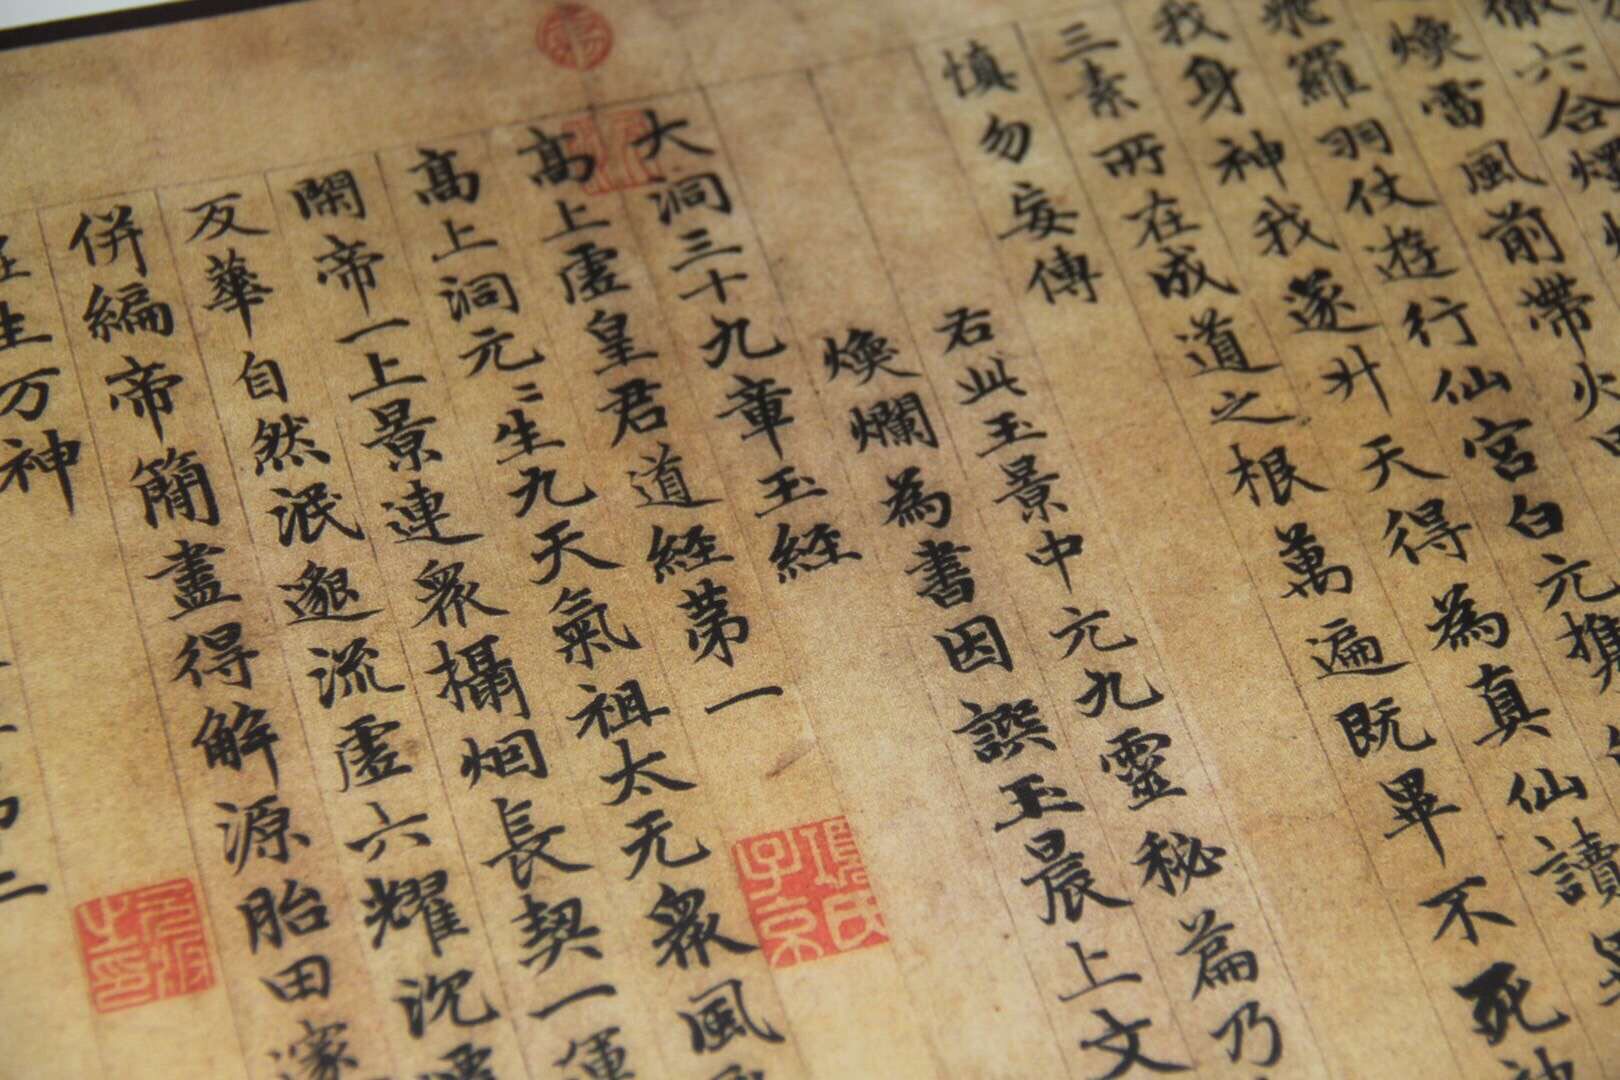 徹六合
煥雷風前帶火
飛羅羽仗遊行仙宮白元攜
我身神我遂升天得為真仙讀
三素所在成道之根萬遍既畢不死
慎勿妄傳
右此玉景中元九靈秘篇乃
煥爛為書因譔玉晨上文
大洞三十九章玉經
高上虛皇君道經第一
高上洞元〻生九天氣祖太无衆風
開帝一上景連衆攝烟長契一運
反華自然泯邈流虛六耀沉
併編帝簡盡得解源胎田邃
生万神
項氏子京